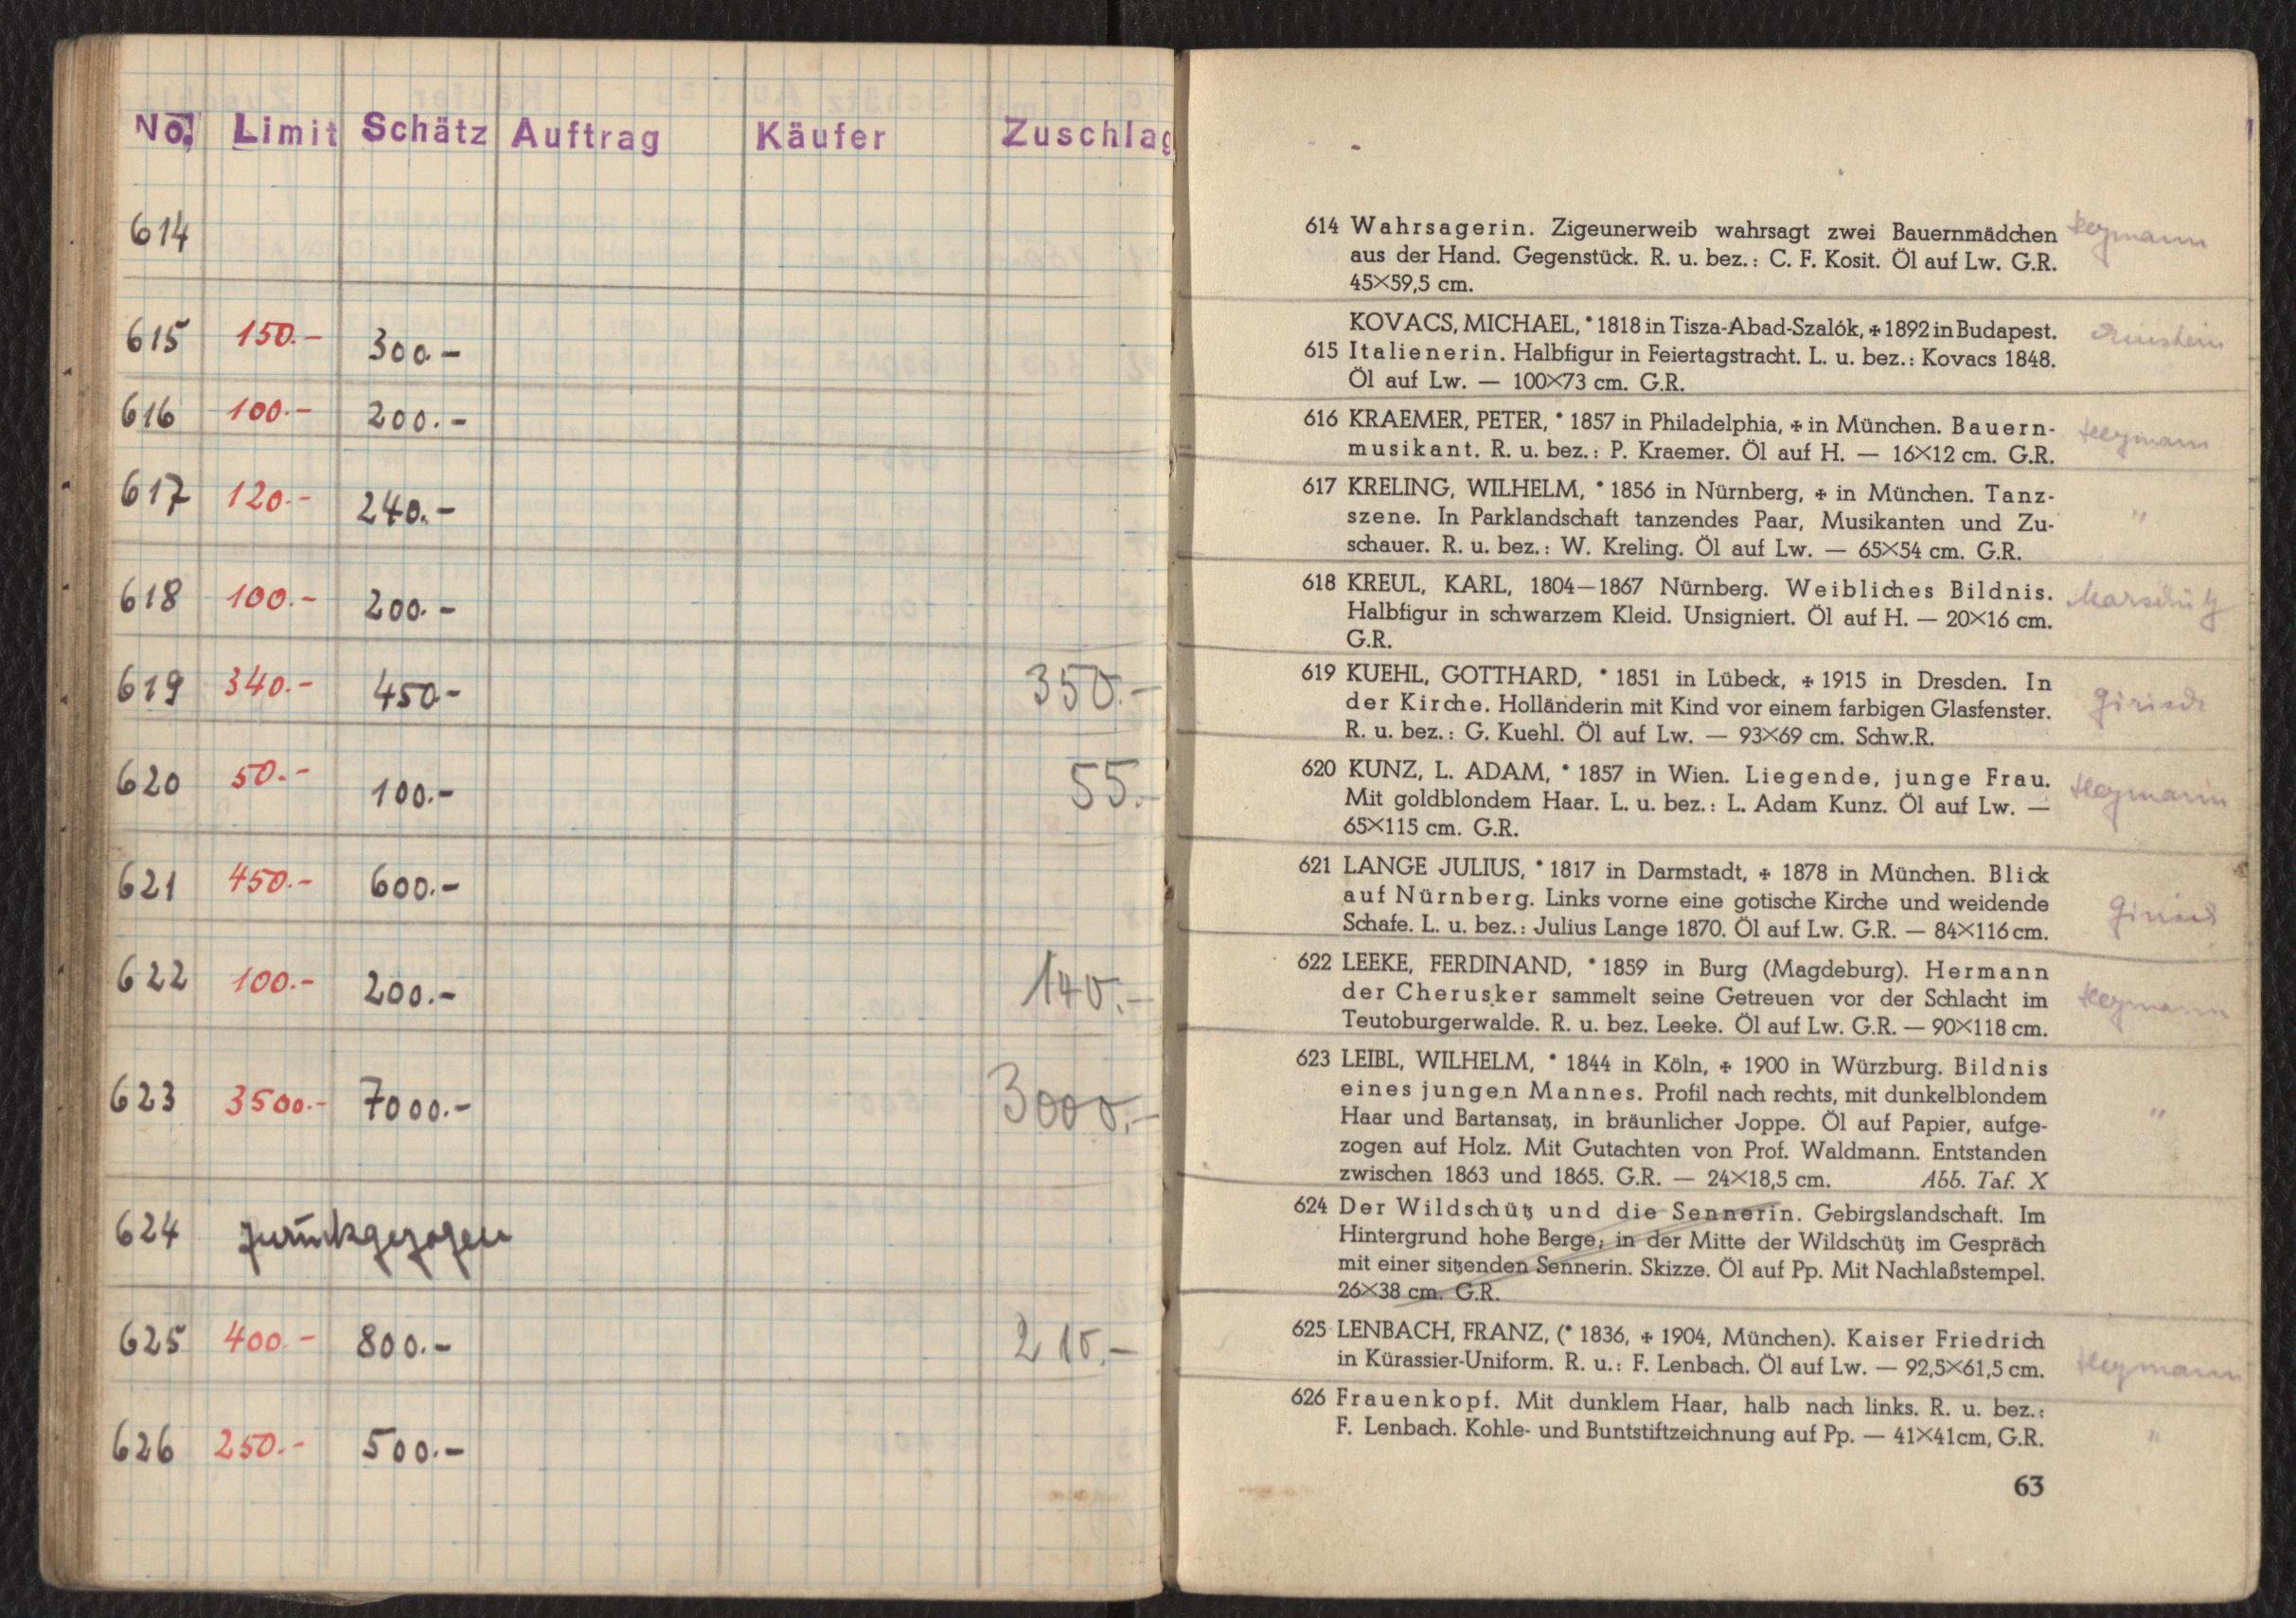 No. Limit Schätz Auftrag Käufer Zuschlag
614
615 150.- 300.-
616 100.- 200.-
617 120.- 240.-
618 100.- 200.-
619 340.- 450.- 350.-
620 50.- 100.- 55.-
621 450.- 600.-
622 100.- 200.- 140.-
623 3500.- 7000.- 3000.-
624 zurückgezogen
625 400.- 800.- 210.-
626 250.- 500.-
614 Wahrsagerin. Zigeunerweib wahrsagt zwei Bauernmädchen Heymann
aus der Hand. Gegenstück. R. u. bez.: C. F. Kosit. Öl auf Lw. G.R.
45×59,5 cm.
KOVACS, MICHAEL, * 1818 in Tisza-Abad-Szalók, ✠ 1892 in Budapest.
615 Italienerin. Halbfigur in Feiertagstracht. L. u. bez.: Kovacs 1848.
Öl auf Lw. — 100×73 cm. G.R.
616 KRAEMER, PETER, * 1857 in Philadelphia, ✠ in München. Bauern- Heymann
musikant. R. u. bez.: P. Kraemer. Öl auf H. — 16×12 cm. G.R.
617 KRELING, WILHELM, * 1856 in Nürnberg, ✠ in München. Tanz-
szene. In Parklandschaft tanzendes Paar, Musikanten und Zu- "
schauer. R. u. bez.: W. Kreling. Öl auf Lw. — 65×54 cm. G.R.
618 KREUL, KARL, 1804—1867 Nürnberg. Weibliches Bildnis. Marschütz
Halbfigur in schwarzem Kleid. Unsigniert. Öl auf H. — 20×16 cm.
G.R.
619 KUEHL, GOTTHARD, * 1851 in Lübeck, ✠ 1915 in Dresden. In
der Kirche. Holländerin mit Kind vor einem farbigen Glasfenster.
R. u. bez.: G. Kuehl. Öl auf Lw. — 93×69 cm. Schw.R.
620 KUNZ, L. ADAM, * 1857 in Wien. Liegende, junge Frau. Heymann
Mit goldblondem Haar. L. u. bez.: L. Adam Kunz. Öl auf Lw. —
65×115 cm. G.R.
621 LANGE JULIUS, * 1817 in Darmstadt, ✠ 1878 in München. Blick
auf Nürnberg. Links vorne eine gotische Kirche und weidende
Schafe. L. u. bez.: Julius Lange 1870. Öl auf Lw. G.R. — 84×116 cm.
622 LEEKE, FERDINAND, * 1859 in Burg (Magdeburg). Hermann
der Cherusker sammelt seine Getreuen vor der Schlacht im Heymann
Teutoburgerwalde. R. u. bez. Leeke. Öl auf Lw. G.R. — 90×118 cm.
623 LEIBL, WILHELM, * 1844 in Köln, ✠ 1900 in Würzburg. Bildnis
eines jungen Mannes. Profil nach rechts, mit dunkelblondem
Haar und Bartansatz, in bräunlicher Joppe. Öl auf Papier, aufge- "
zogen auf Holz. Mit Gutachten von Prof. Waldmann. Entstanden
zwischen 1863 und 1865. G.R. — 24×18,5 cm. Abb. Taf. X
624 Der Wildschütz und die Sennerin. Gebirgslandschaft. Im
Hintergrund hohe Berge, in der Mitte der Wildschütz im Gespräch
mit einer sitzenden Sennerin. Skizze. Öl auf Pp. Mit Nachlaßstempel.
26×38 cm. G.R.
625 LENBACH, FRANZ, (* 1836, ✠ 1904, München). Kaiser Friedrich
in Kürassier-Uniform. R. u.: F. Lenbach. Öl auf Lw. — 92,5×61,5 cm. Heymann
626 Frauenkopf. Mit dunklem Haar, halb nach links. R. u. bez.:
F. Lenbach. Kohle- und Buntstiftzeichnung auf Pp. — 41×41cm, G.R. "
63